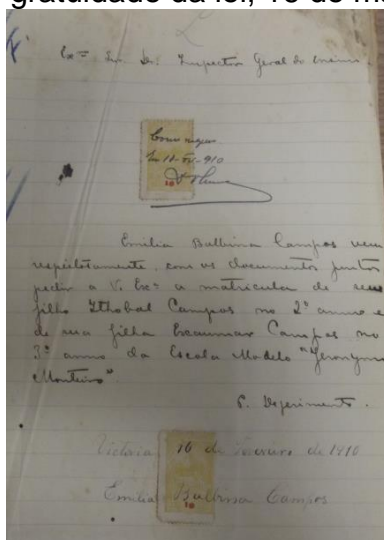 gratuidade da lei, 16 de m
Exmo Snr. Dr. Inspector Geral do Ensino
Como requer
Em 18-IV-910
10
Emilia Balbina Campos vem
respeitosamente, com os documentos juntos
pedir a V. Exa a matricula de seu
filho Ithobal Campos no 2º anno e
de sua filha Campos no
3º anno da Escola Modelo "Jeronymo
Monteiro".
P. Deferimento.
Victoria 16 de Fevereiro de 1910
Emilia Balbina Campos
10